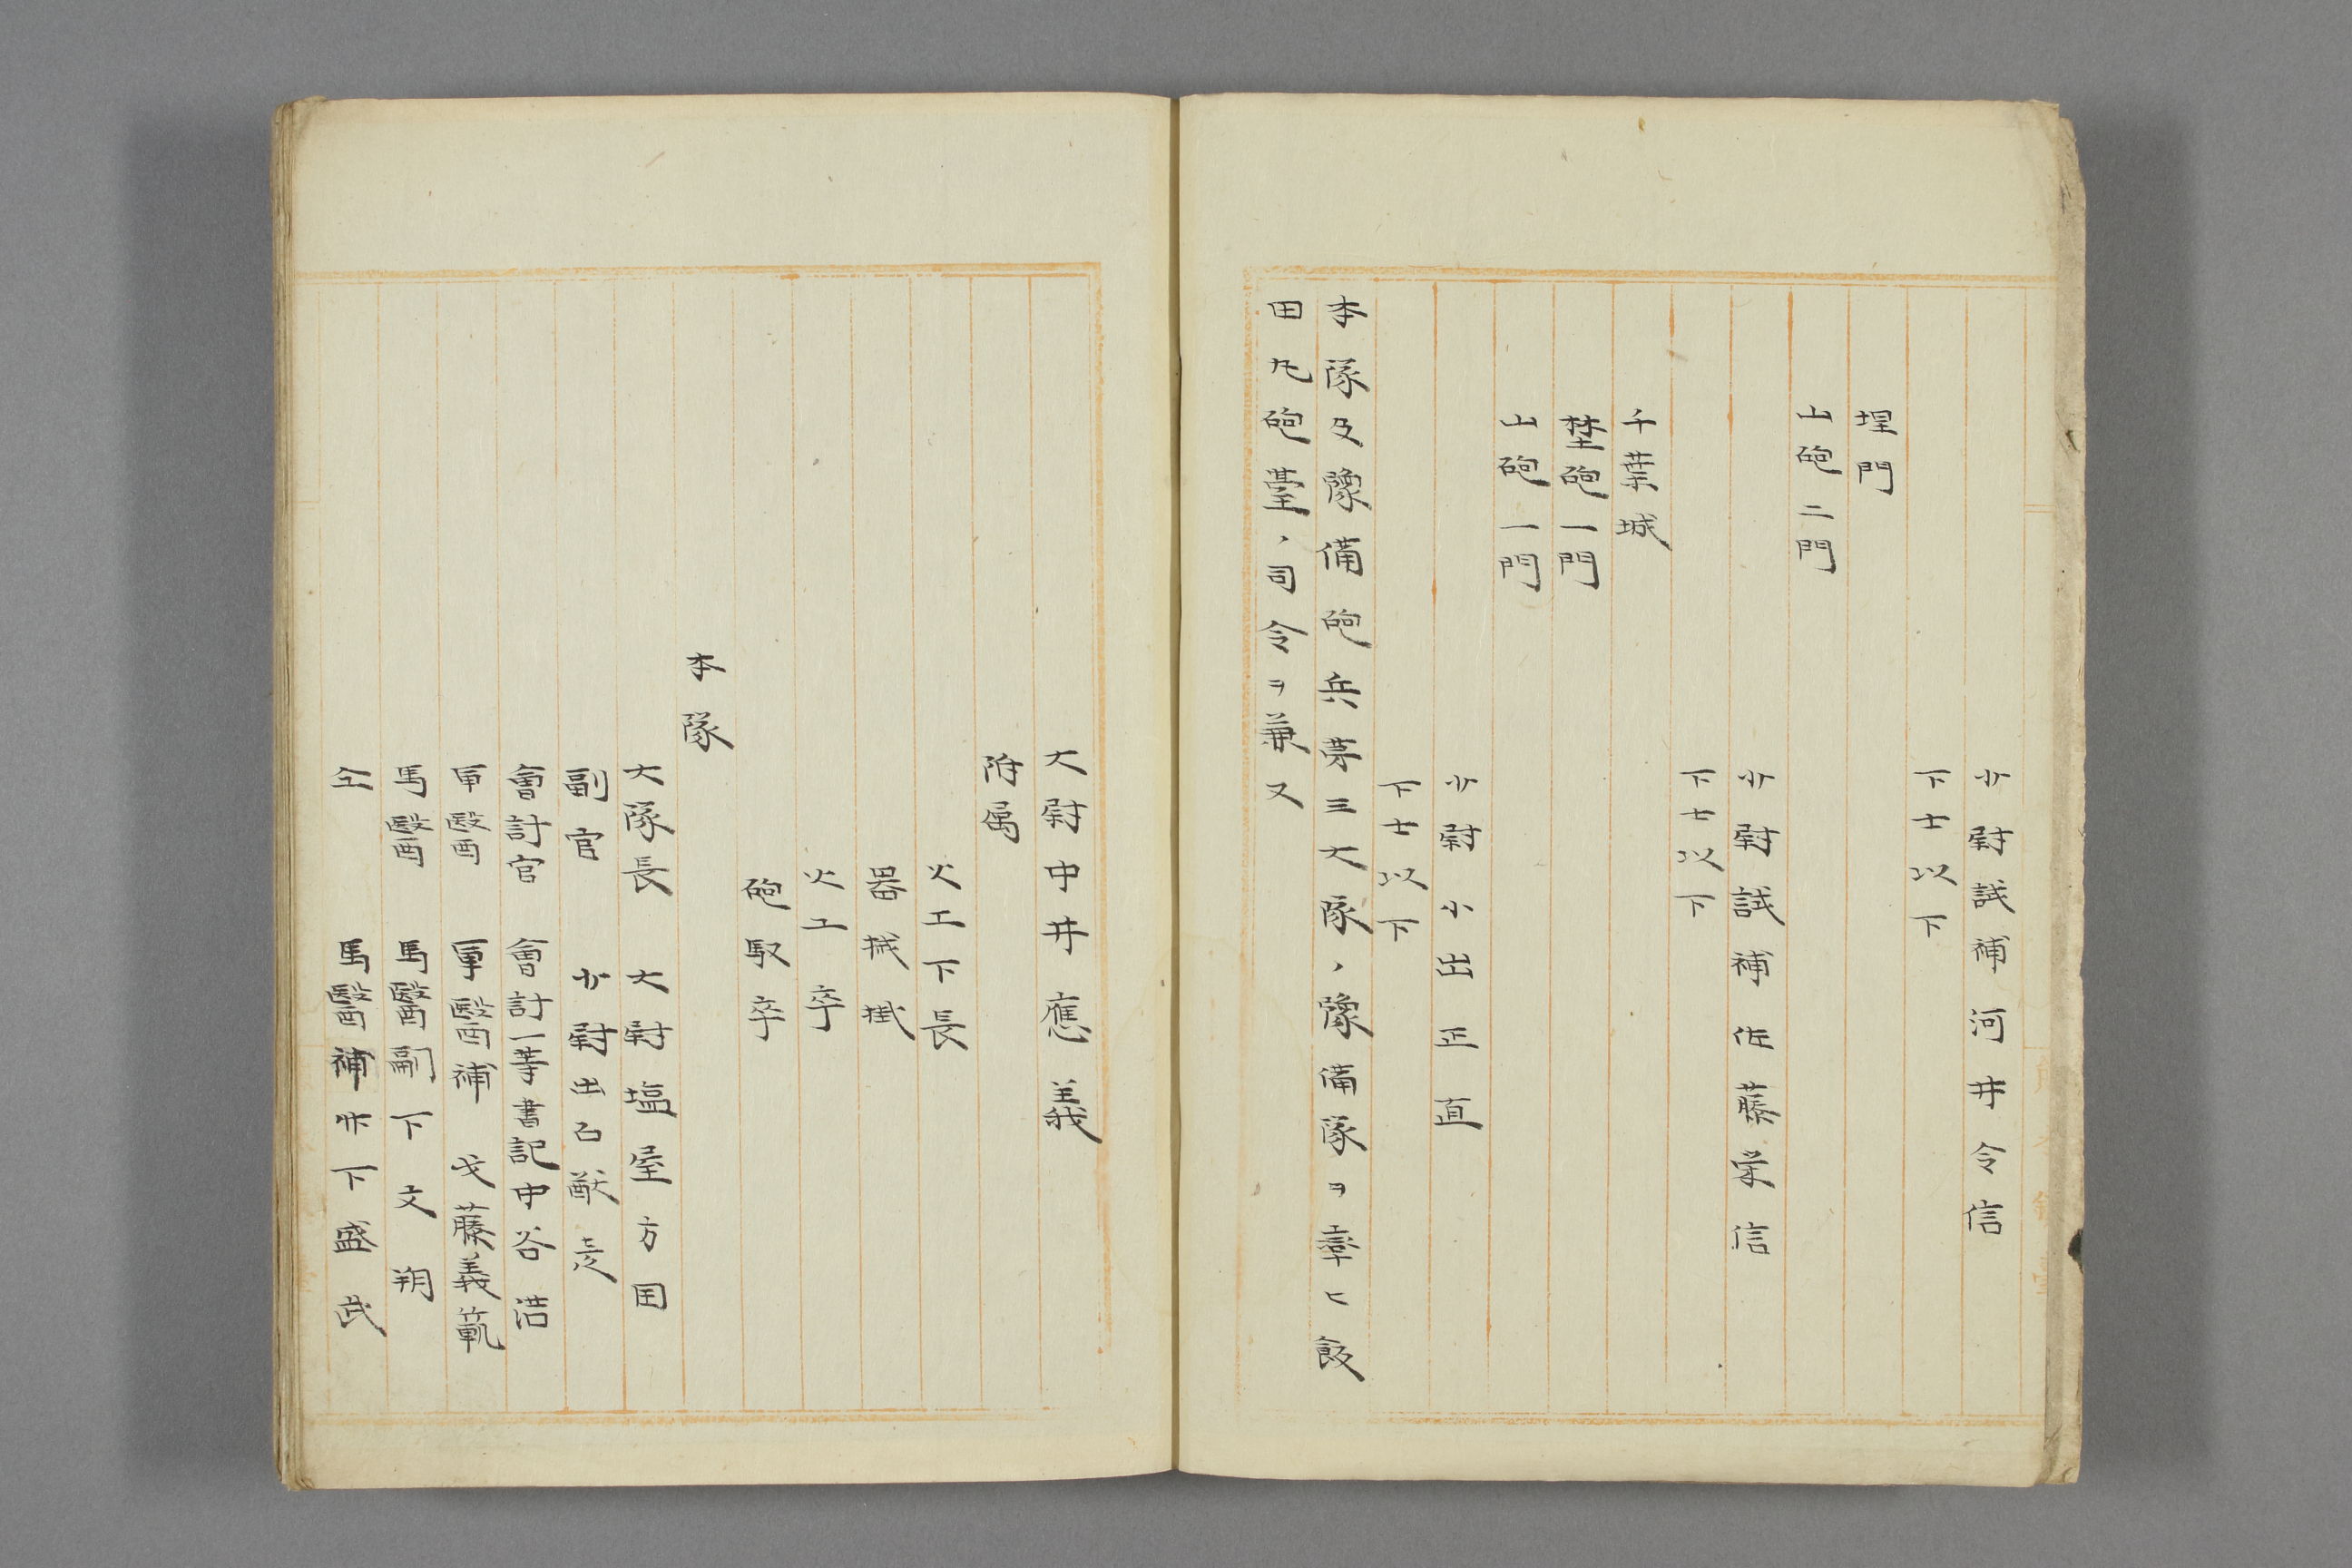 少尉試補河井令信
下士以下
埋門
山砲二門
少尉試補佐藤栄信
下士以下
千葉城
埜砲一門
山砲一門
少尉小出正直
下士以下
本隊及豫備砲兵第三大隊、豫備隊ヲ率ヒ飯
田丸砲臺、司令ヲ兼又
大尉中井應義
附属
火工下長
器械掛
火工卒
砲馭卒
本隊
大隊長 大尉塩屋方国
副官 少尉出石猷
會計官 會計一等書記中谷浩
軍醫 軍醫補 藤義範
馬醫 馬醫副下文朔
仝 馬醫補 下盛武